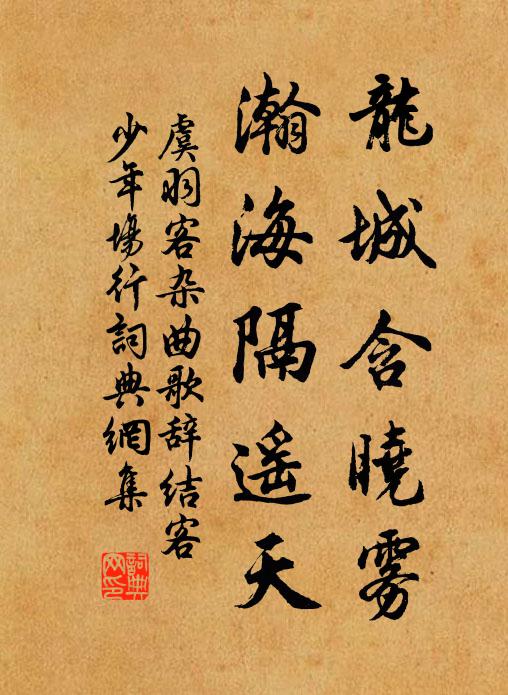 龍城含曉霧
瀚海隔遥天
虞羽客杂曲歌辞结客
少年場行詞典網集
詞典
网印